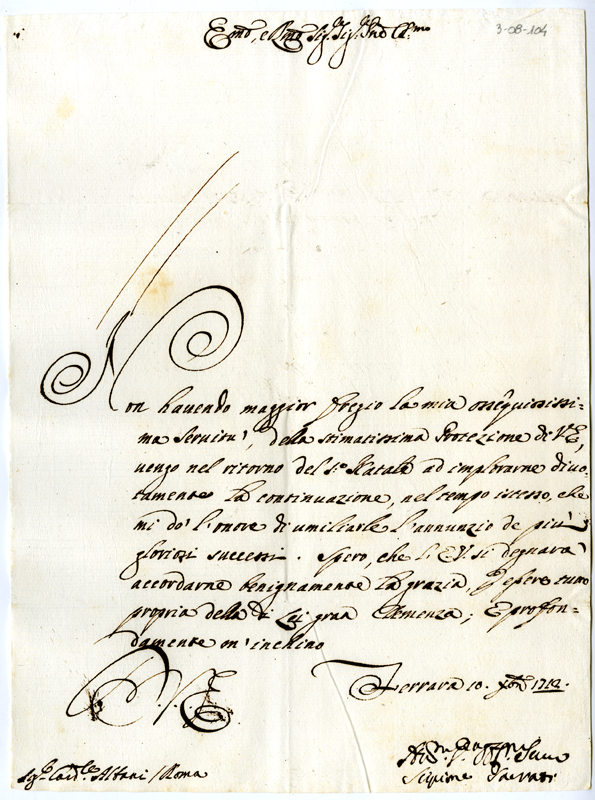 3-08-104
Em.o, e Rmo Sig.r Sig.r Pne Col.mo
Non havendo maggior fregio la mia ossequisissi=
ma servitù, della stimatissima Protezione di V.E,
vengo nel ritorno del S.o Natale ad implorarne divo=
tamente la continuazione, nel tempo istesso, che
mi dò l'onore di umiliarle l'annunzio de più
gloriosi successi. Spero, che l'E.V. si degnarà
accordarne benignamente la grazia, p esere tutto
propria della di Lei gran Clemenza; E profon=
damente m'inchino
D. V. E.
Ferrara 10. Xbre 1712.
Scipione Sacrati
Sig.r Card.le Albani / Roma